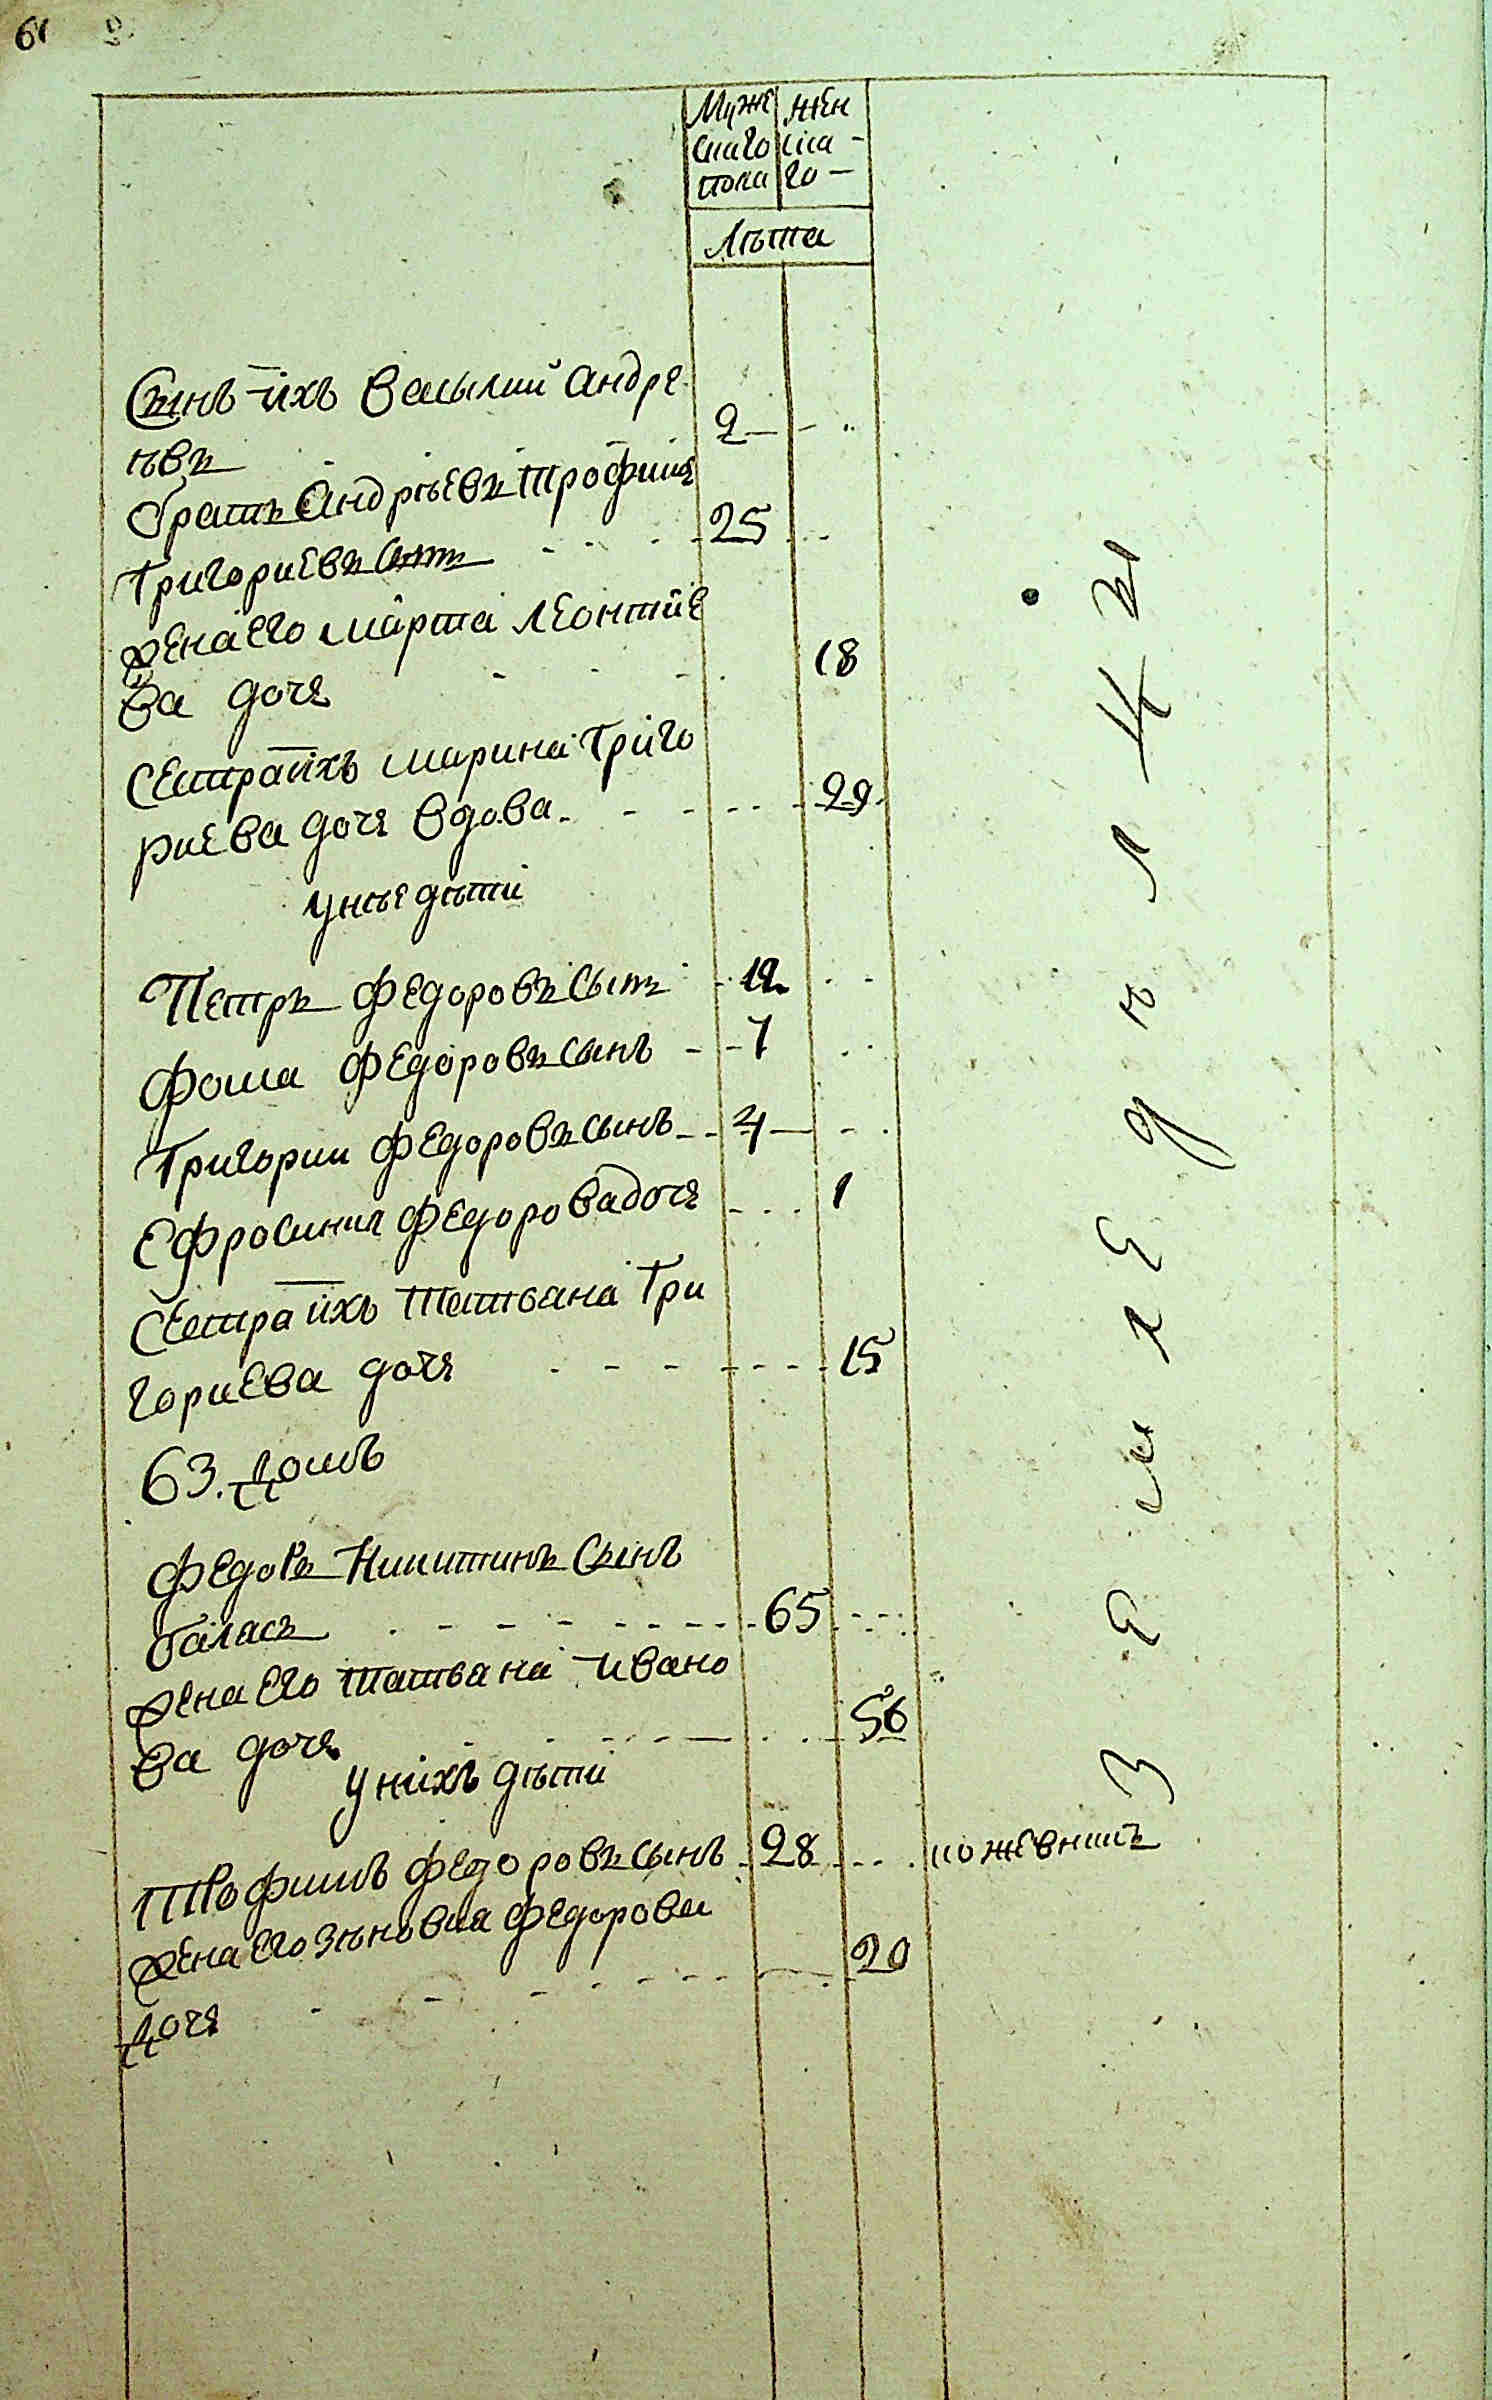 61
Муже жен
скаго ска -
пола го -
Лѣта
Сынъ ихъ василий андре
ѣвъ 2
братъ андрѣевъ трофимъ
григориевъ сынъ 25
жена его марта леонтие
ва дочь 18
сестра ихъ марина григо
риева дочь вдова 29
у нѣе дѣти
Петръ федоровъ сынъ 12
фома федоровъ сынъ 7
григории федоровъ сынъ 4
Ефросиния федорова дочь 1
сестра ихъ татьана гри
гориева дочь 15
63. домъ
федоръ никитинъ сынъ
баласъ 65
жена его татьана ивано
ва дочь 56
у нихъ дѣти
трофимъ федоровъ сынъ 28
жена его зѣновиа федорова
дочь 20
земледѣлцы